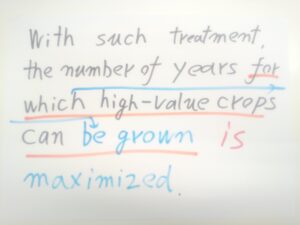 With such treatment,
the number of years for
which high-value crops
can be grown is
maximized.